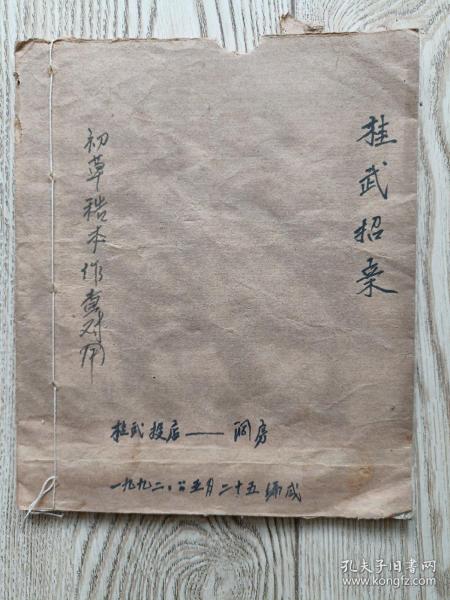 桂武招亲
初草稿本作查对用
桂武投店——洞房
一九九二.公五月二十五编成
孔夫子旧书网
www.kongfz.com